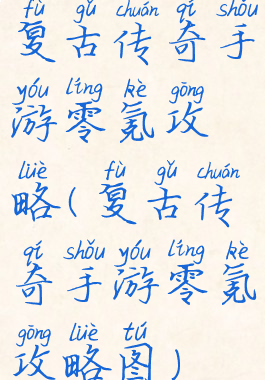 fù gǔ chuán qí shǒu
复古传奇手
yóu líng kè gōng
游零氪攻
lüè fù gǔ chuán
略(复古传
qí shǒu yóu líng kè
奇手游零氪
gōng lüè tú
攻略图)